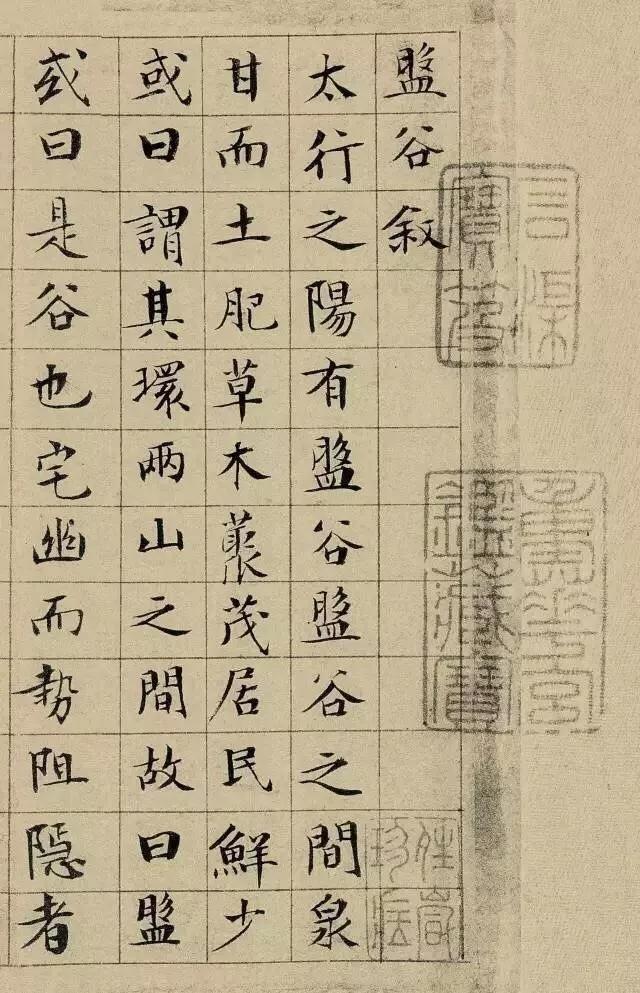 盤谷敘
太行之陽有盤谷盤谷之間泉
甘而土肥草木藂茂居民鮮少
或曰謂其環兩山之間故曰盤
或曰是谷也宅幽而勢阻隱者
石渠寶笈
重華宮鑑藏寶